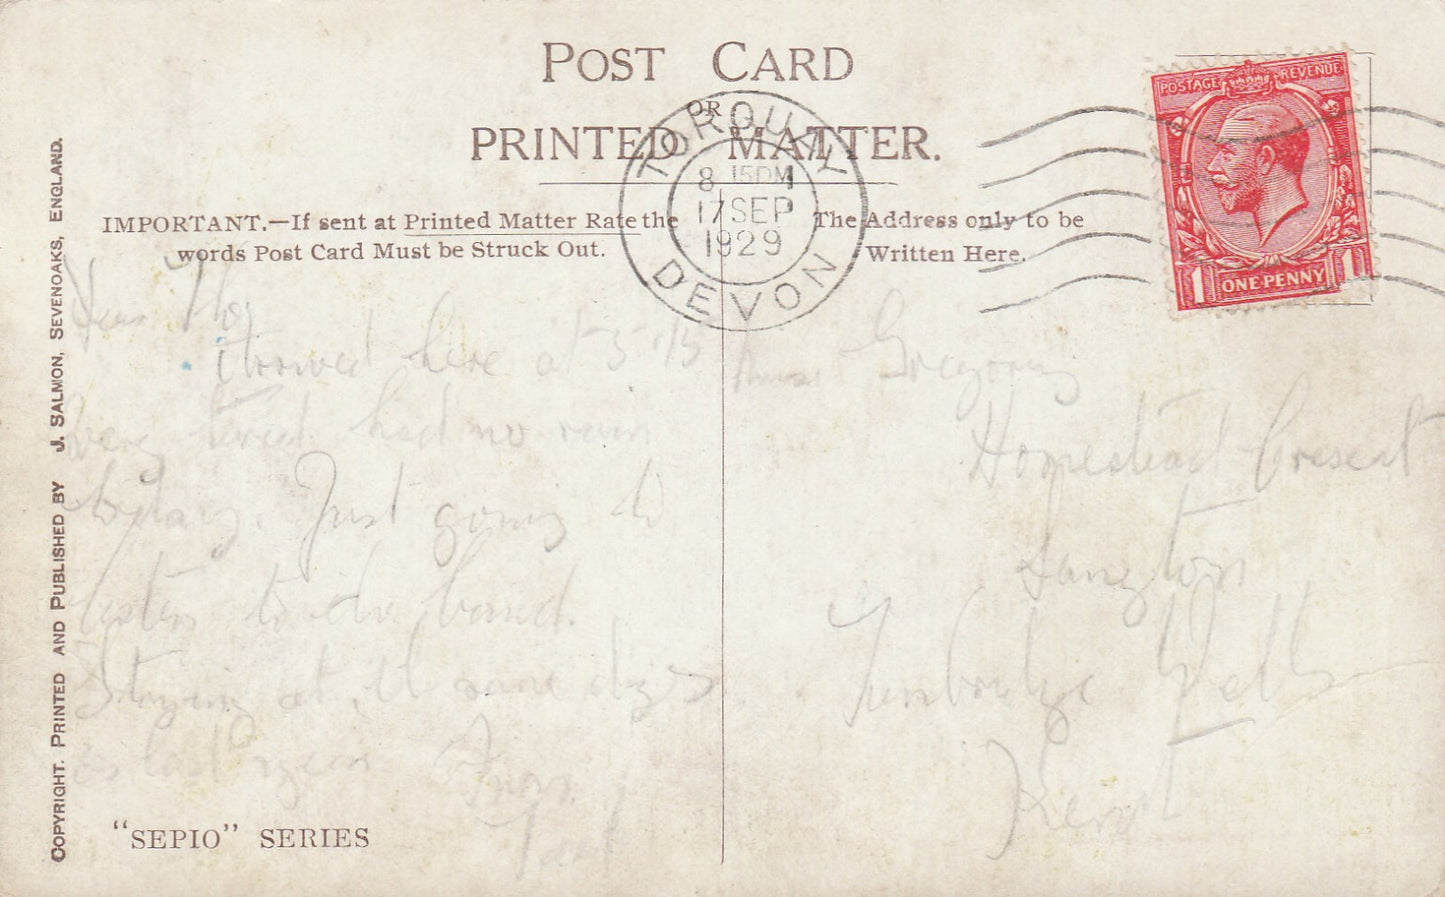 POST CARD
OR
PRINTED MATTER.
IMPORTANT.—If sent at Printed Matter Rate the
words Post Card Must be Struck Out.
The Address only to be
Written Here.
TORQUAY
8 15PM
17 SEP
1929
DEVON
POSTAGE REVENUE
1 ONE PENNY 1
COPYRIGHT. PRINTED AND PUBLISHED BY J. SALMON, SEVENOAKS, ENGLAND.
Dear
Arrived here at 5-15
very tired had no rain
Just going to
listen to the band.
Staying at same
as last year From
"SEPIO" SERIES
Gregory
Homestead Crescent
Langton
Tunbridge Wells
Kent